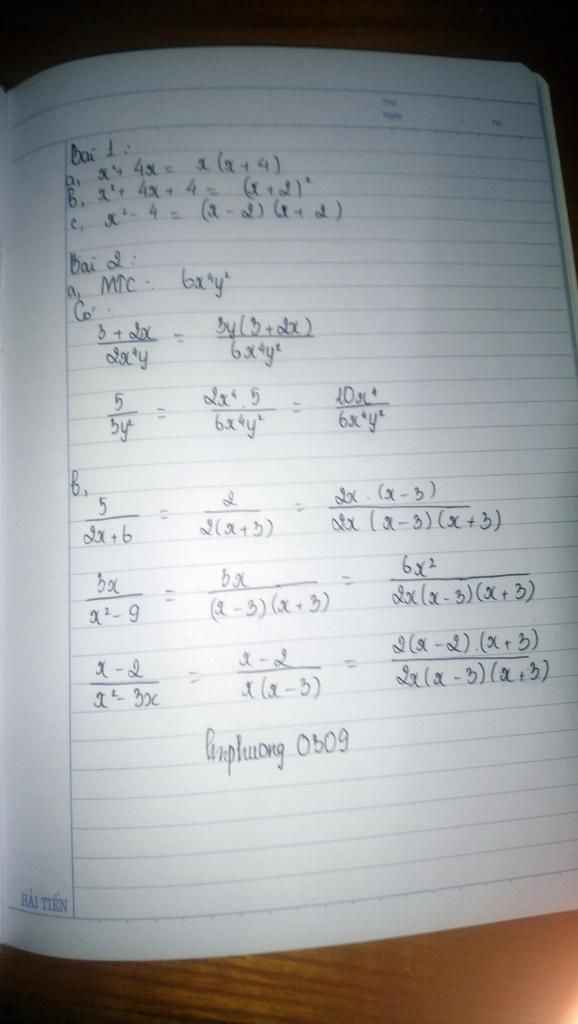 Thứ
Ngày
No.
Bài 1:
a, x² + 4x = x(x + 4)
b, x² + 4x + 4 = (x + 2)²
c, x² - 4 = (x - 2)(x + 2)
Bài 2:
a, MTC: 6x⁴y²
Có:
(3 + 2x)/(2x⁴y) = 3y(3 + 2x)/(6x⁴y²)
5/(3y²) = (2x⁴.5)/(6x⁴y²) = 10x⁴/(6x⁴y²)
b,
5/(2x + 6) = 2/(2(x + 3)) = 2x.(x - 3)/(2x(x - 3)(x + 3))
3x/(x² - 9) = 3x/((x - 3)(x + 3)) = 6x²/(2x(x - 3)(x + 3))
(x - 2)/(x² - 3x) = (x - 2)/(x(x - 3)) = 2(x - 2).(x + 3)/(2x(x - 3)(x + 3))
0309
HẢI TIẾN